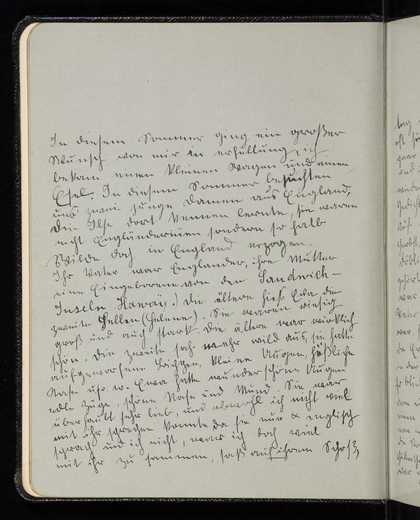 In diesem Sommer ging ein großer
Wunsch von mir in erfüllung, ich
bekam einen kleinen Wagen und einen
Esel. In diesem Sommer besuchten
uns zwei junge Damen aus England,
die Ilse dort kennen lernte, sie waren
nicht Engländerinnen sondern so halb
Wilde doch in England erzogen.
Ihr Vater war Engländer, ihre Mutter
eine Eingeborene von den Sandwich-
Inseln Hawai.) die ältere hieß Eva die
zweite Hellen (Helene). Sie waren riesig
groß und auch stark. Die ältere war wirklich
schön. Die zweite sah mehr wild aus, sie hatte
aufgeworfene Lippen, kleine Augen, häßliche
Nase usw. Eva hatte wunderschöne Augen
edle Züge, schöne Nase und Mund. Sie war
überhaupt sehr lieb, und obwohl ich nicht viel
mit ihr sprechen konnte da sie nur englisch
sprach und ich nicht, war ich doch viel
mit ihr zu sammen, saß auf ihrem Schoß,